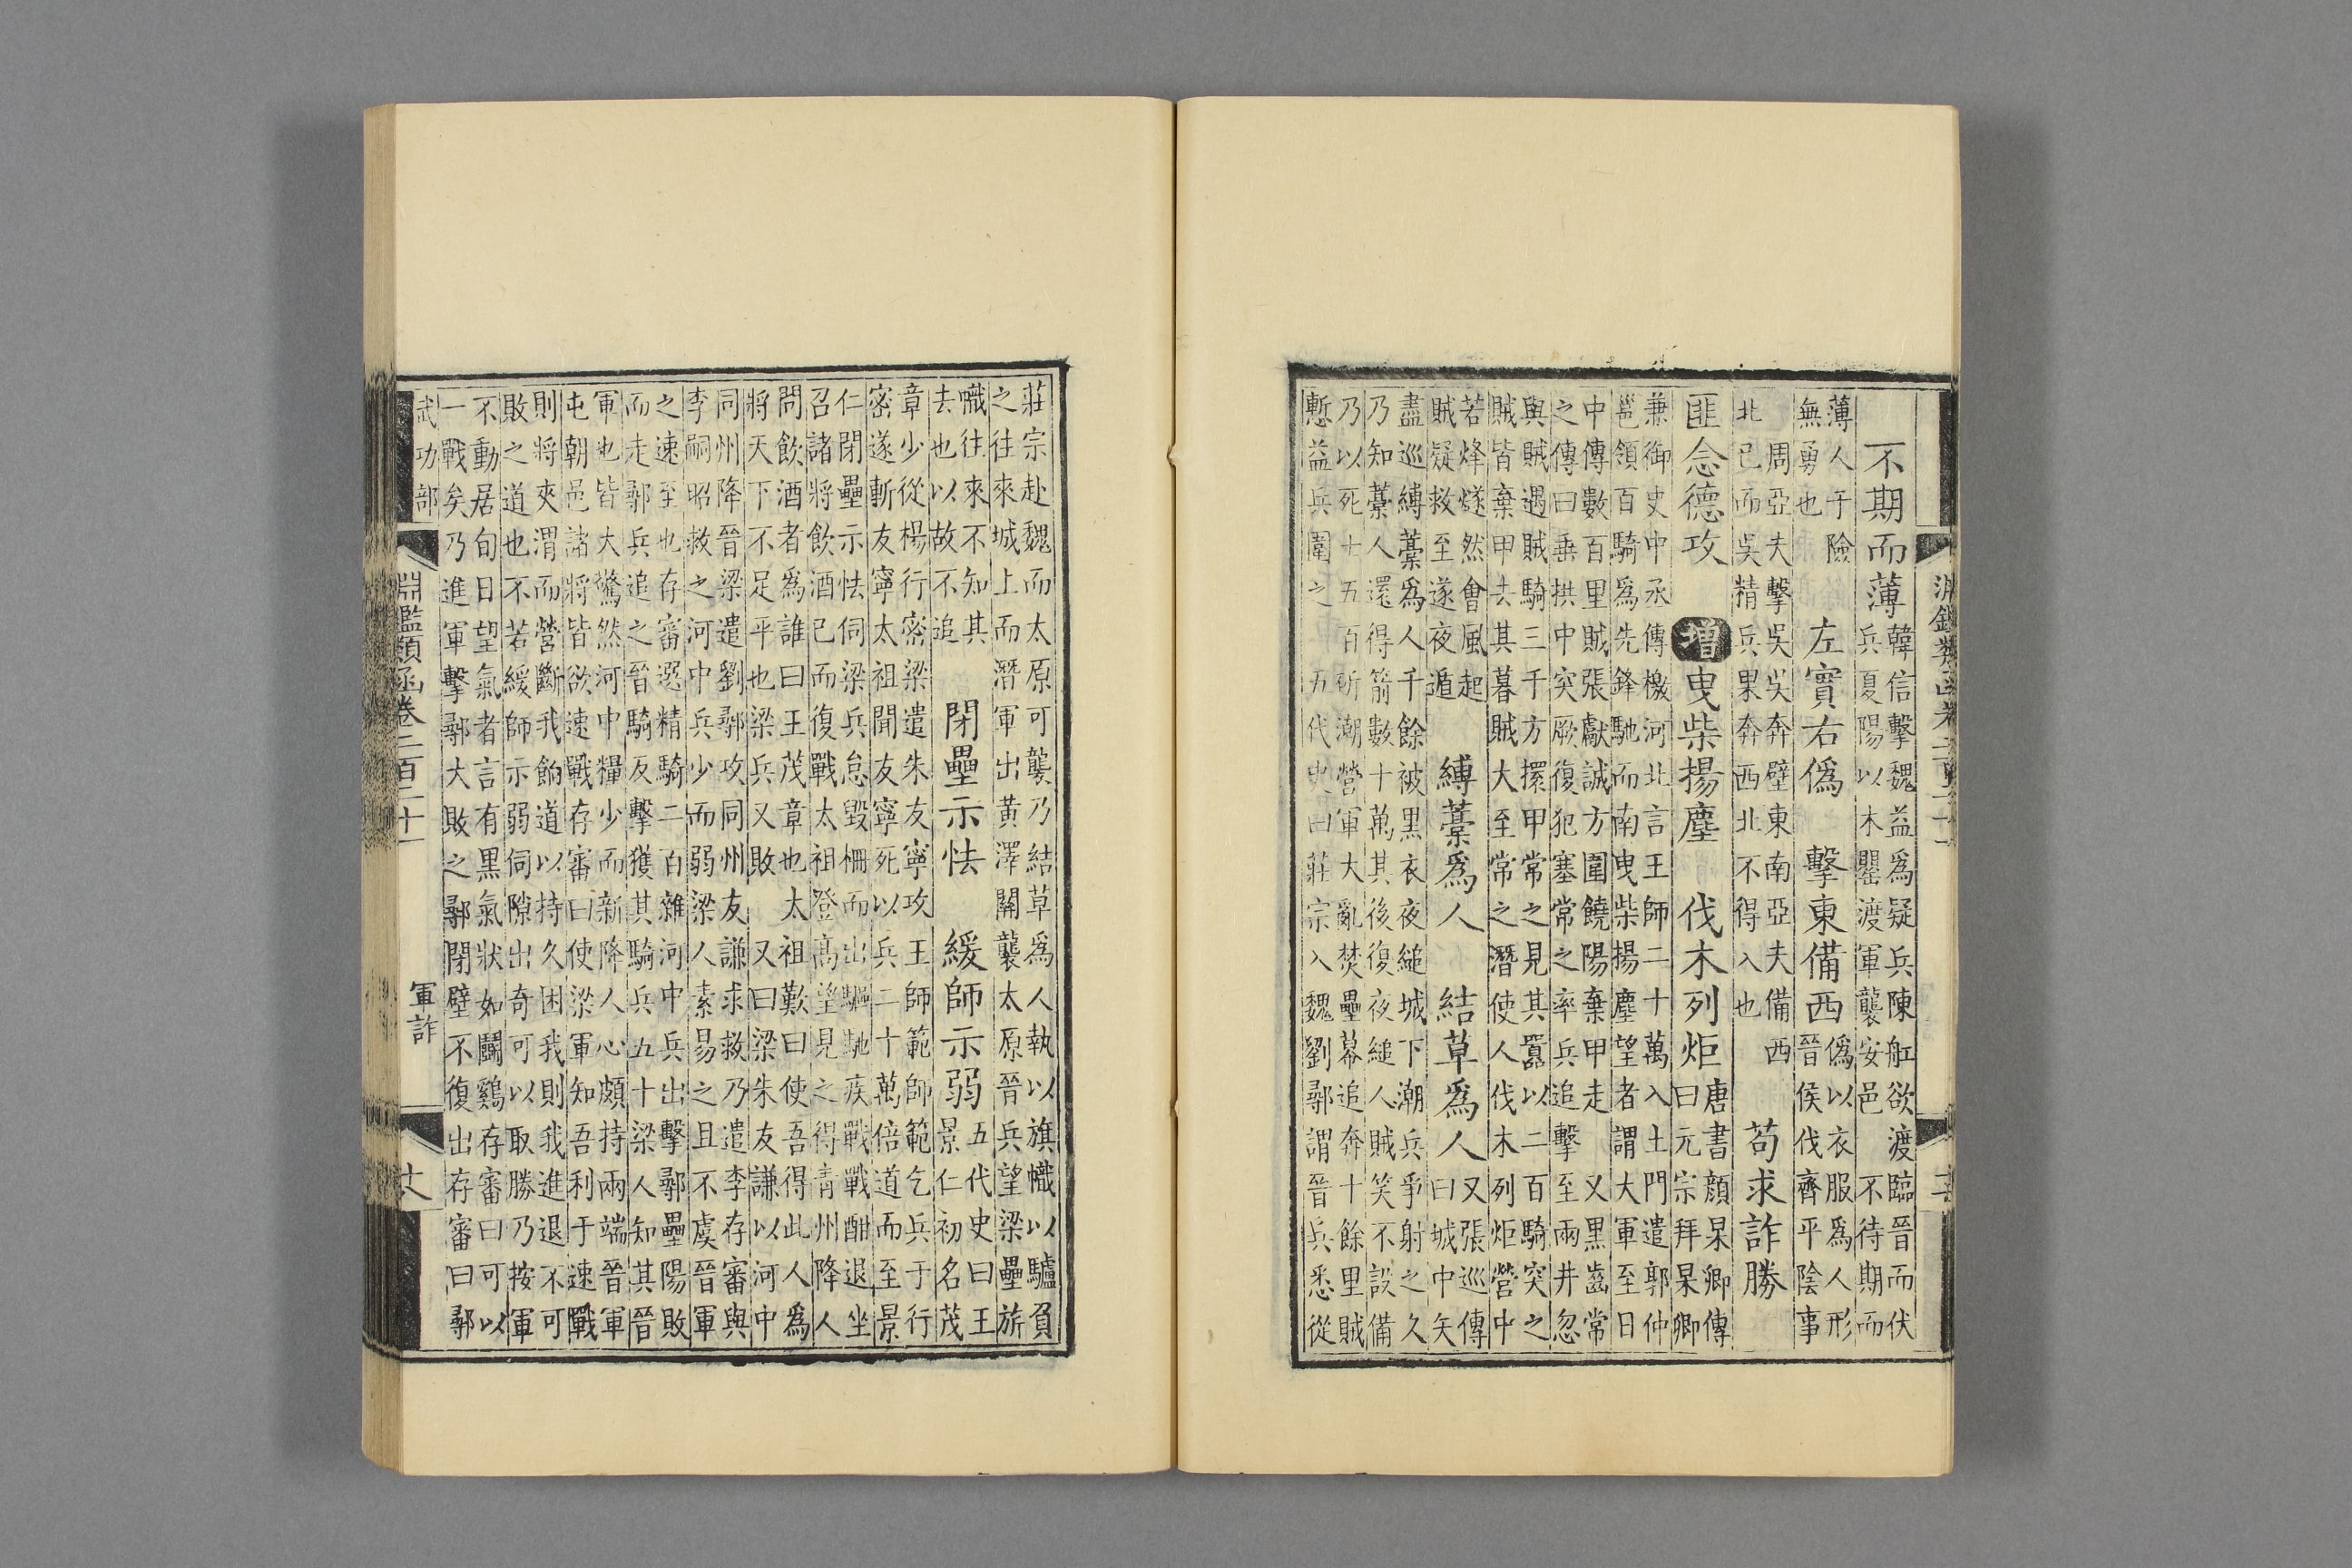 不期而薄
韓信擊魏益爲疑兵陳舡欲渡臨晉而伏
兵夏陽以木罌渡軍襲安邑 不待期而
薄人于險
無勇也
左實右偽 擊東備西
偽以衣服爲人形
晉侯伐齊平陰事
周亞夫擊吳吳奔壁東南亞夫備西
北已而吳精兵果奔西北不得入也
苟求詐勝
匪念德攻 增 曳柴揚塵 伐木列炬
唐書顔杲卿傳
曰元宗拜杲卿
兼御史中丞傳檄河北言王師二十萬入土門遣郭仲
邕領百騎爲先鋒馳而南曳柴揚塵望者謂大軍至日
中傳數百里賊張獻誠方圍饒陽棄甲走 又黑齒常
之傳曰垂拱中突厥復犯塞常之率兵追擊至兩井忽
與賊遇賊騎三千方擐甲常之見其囂以二百騎突之
賊皆棄甲去其暮賊大至常之潛使人伐木列炬營中
若烽燧然會風起
賊疑救至遂夜遁
縛藁爲人 結草爲人
又張巡傳
曰城中矢
盡巡縛藁爲人千餘被黑衣夜縋城下潮兵爭射之久
乃知藁人還得箭數十萬其後復夜縋人賊笑不設備
乃以死士五百斫潮營軍大亂焚壘幕追奔十餘里賊
慙益兵圍之 五代史曰莊宗入魏劉鄩謂晉兵悉從
莊宗赴魏而太原可襲乃結草爲人執以旗幟以驢負
之往來城上而潛軍出黃澤關襲太原晉兵望梁壘旂
幟往來不知其
去也以故不追
閉壘示怯 緩師示弱
五代史曰王
景仁初名茂
章少從楊行密梁遣朱友寧攻王師範師範乞兵于行
密遂斬友寧太祖聞友寧死以兵二十萬倍道而至景
仁閉壘示怯伺梁兵怠毀柵而出驅馳疾戰戰酣退坐
召諸將飲酒已而復戰太祖登高望見之得青州降人
問飲酒者爲誰曰王茂章也太祖歎曰使吾得此人爲
將天下不足平也梁兵又敗 又曰梁朱友謙以河中
同州降晉梁遣劉鄩攻同州友謙求救乃遣李存審與
李嗣昭救之河中兵少而弱梁人素易之且不虞晉軍
之速至也存審選精騎二百雜河中兵出擊鄩壘陽敗
而走鄩兵追之晉騎反擊獲其騎兵五十梁人知其晉
軍也皆大驚然河中糧少而新降人心頗持兩端晉軍
屯朝邑諸將皆欲速戰存審曰使梁軍知吾利于速戰
則將夾渭而營斷我餉道以持久困我則我進退不可
敗之道也不若緩師示弱伺隙出奇可以取勝乃按軍
不動居旬日望氣者言有黑氣狀如鬭鷄存審曰可以
一戰矣乃進軍擊鄩大敗之鄩閉壁不復出存審曰鄩
武功部 軍詐
淵鑑類函卷二百二十一